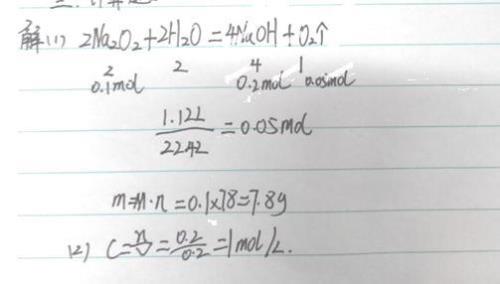 解(1) 2Na₂O₂+2H₂O=4NaOH+O₂↑
2 2 4 1
0.1mol 0.2mol 0.05mol
1.12L
22.42 =0.05mol
m=M·n=0.1×78=7.8g
(2) C=n/V=0.2/0.2=1mol/L.